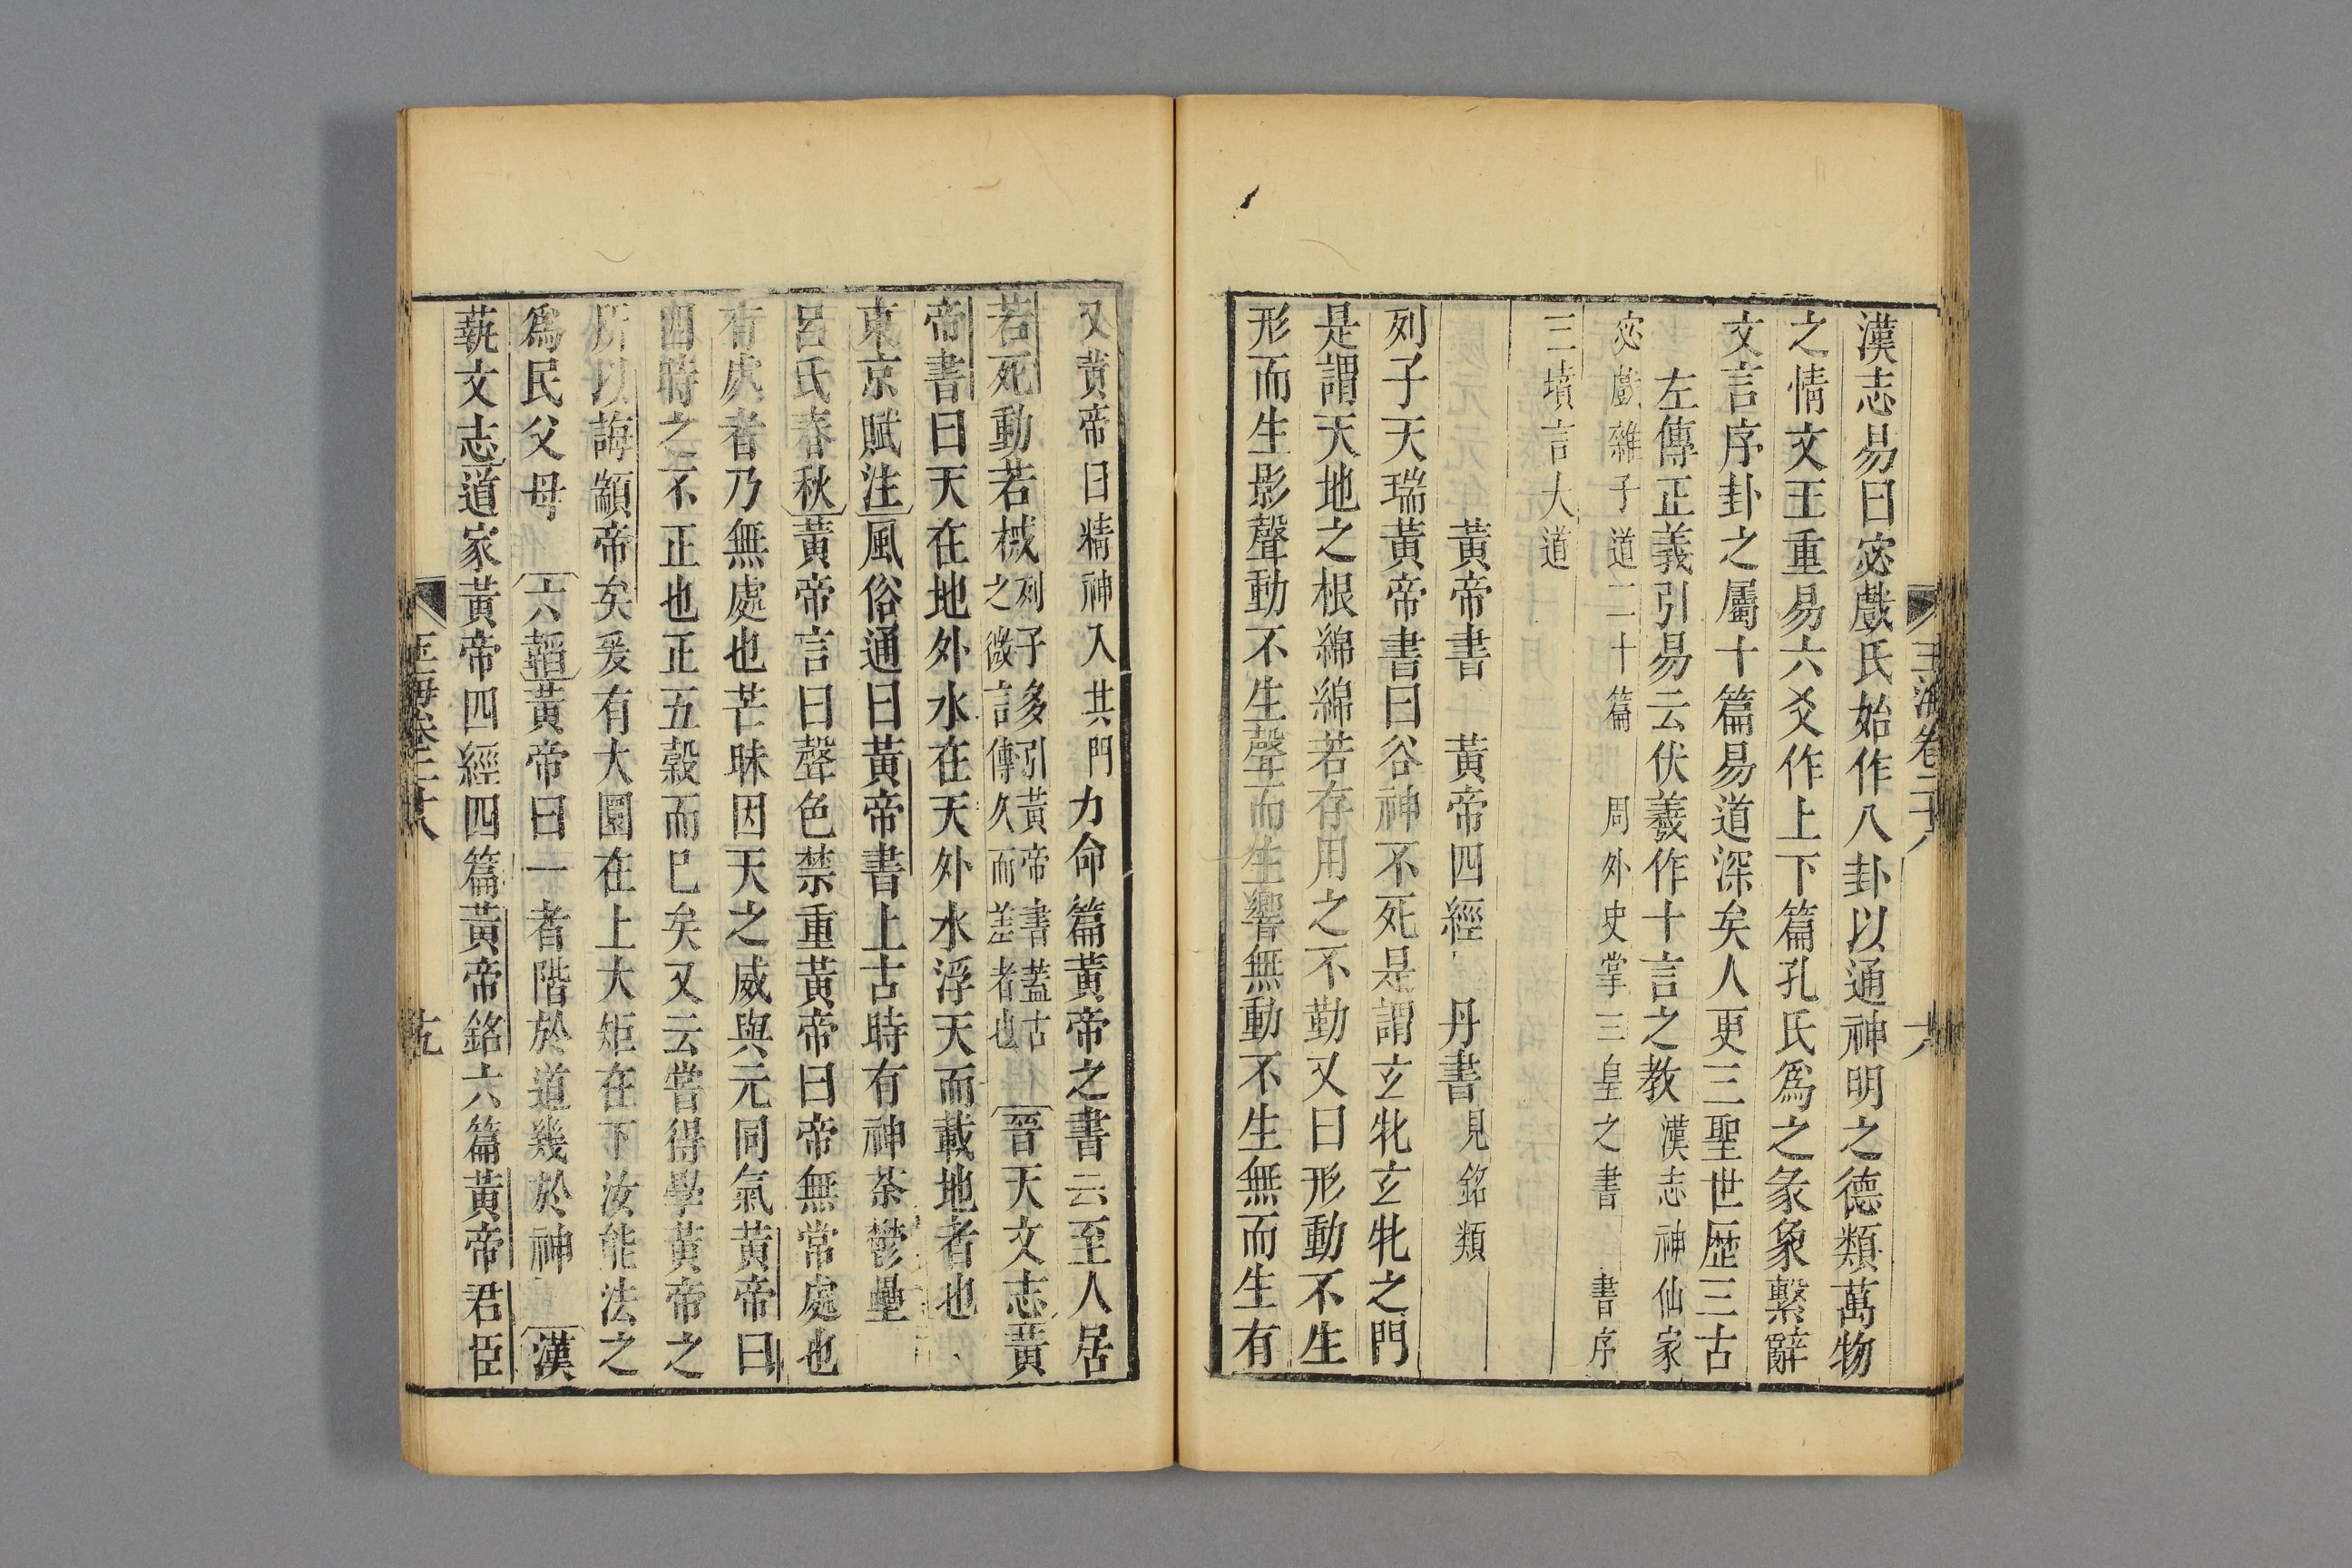 玉海卷二十八
六
漢志易曰宓戲氏始作八卦以通神明之德類萬物
之情文王重易六爻作上下篇孔氏爲之彖象繫辭
文言序卦之屬十篇易道深矣人更三聖世歷三古
左傳正義引易云伏羲作十言之教漢志神仙家
宓戲雜子道二十篇 周外史掌三皇之書 書序
三墳言大道
黃帝書 黃帝四經 丹書見銘類
列子天瑞黃帝書曰谷神不死是謂玄牝玄牝之門
是謂天地之根綿綿若存用之不勤又曰形動不生
形而生影聲動不生聲而生響無動不生無而生有
又黃帝曰精神入其門力命篇黃帝之書云至人居
若死動若械列子多引黃帝書蓋古之微言傳久而差者也晉天文志黃
帝書曰天在地外水在天外水浮天而載地者也
東京賦注風俗通曰黃帝書上古時有神荼鬱壘
呂氏春秋黃帝言曰聲色禁重黃帝曰帝無常處也
有處者乃無處也芒昧因天之威與元同氣黃帝曰
四時之不正也正五穀而巳矣又云嘗得學黃帝之
所以誨顓帝矣爰有大圜在上大矩在下汝能法之
爲民父母 六韜黃帝曰一者階於道幾於神 漢
蓺文志道家黃帝四經四篇黃帝銘六篇黃帝君臣
玉海卷二十八